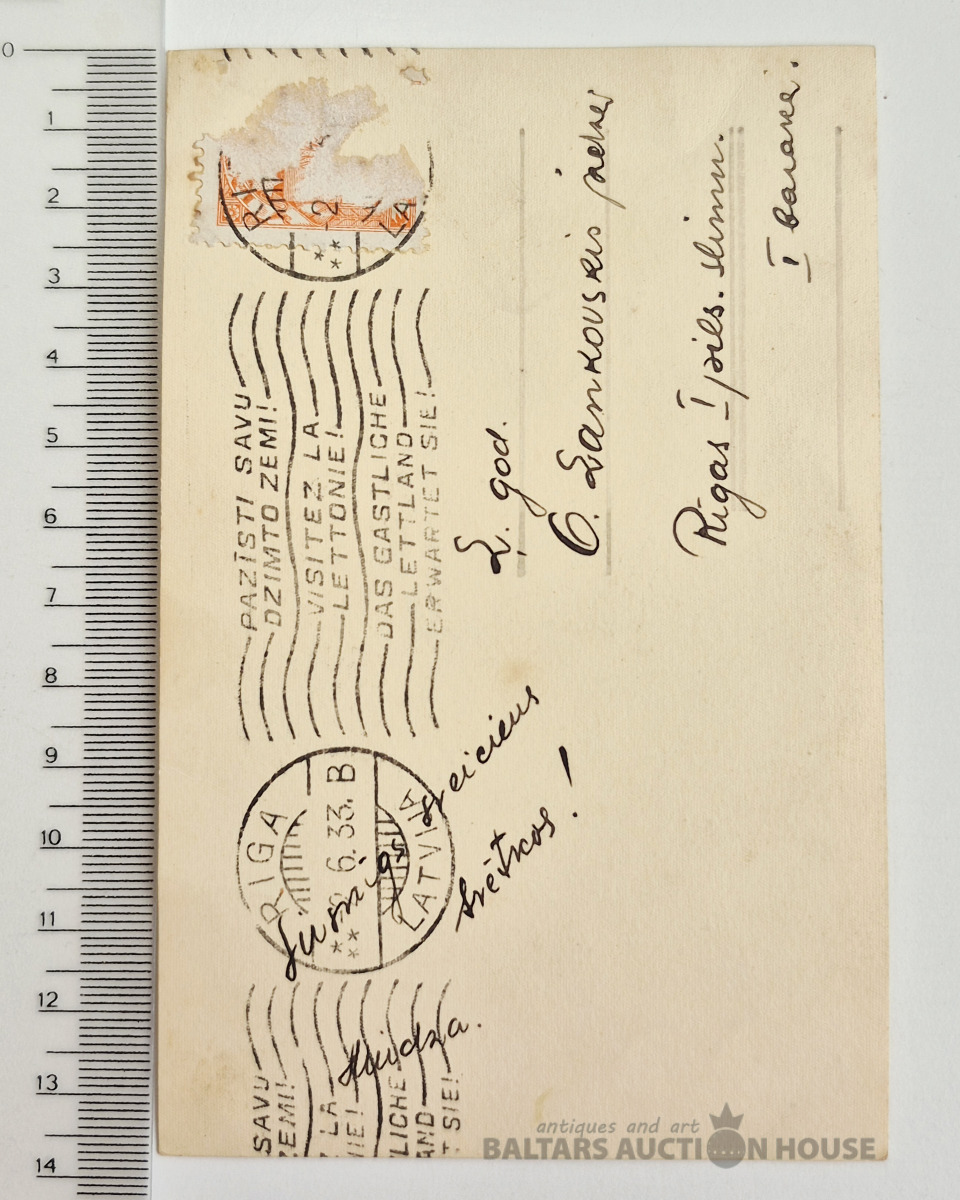 RI
LA
2
PAZĪSTI SAVU
DZIMTO ZEMI!
VISITEZ LA
LETTONIE!
DAS GASTLICHE
LETTLAND
ERWARTET SIE!
RIGA
6.33. B
LATVIJA
SAVU
ZEMI!
LA
NIE!
LICHE
AND
T SIE!
Sirsnīgs sveiciens
svētkos!
Ļ. god.
Rīgas I pils. slimn.
I baraka.
0
1
2
3
4
5
6
7
8
9
10
11
12
13
14
antiques and art
BALTARS AUCTION HOUSE